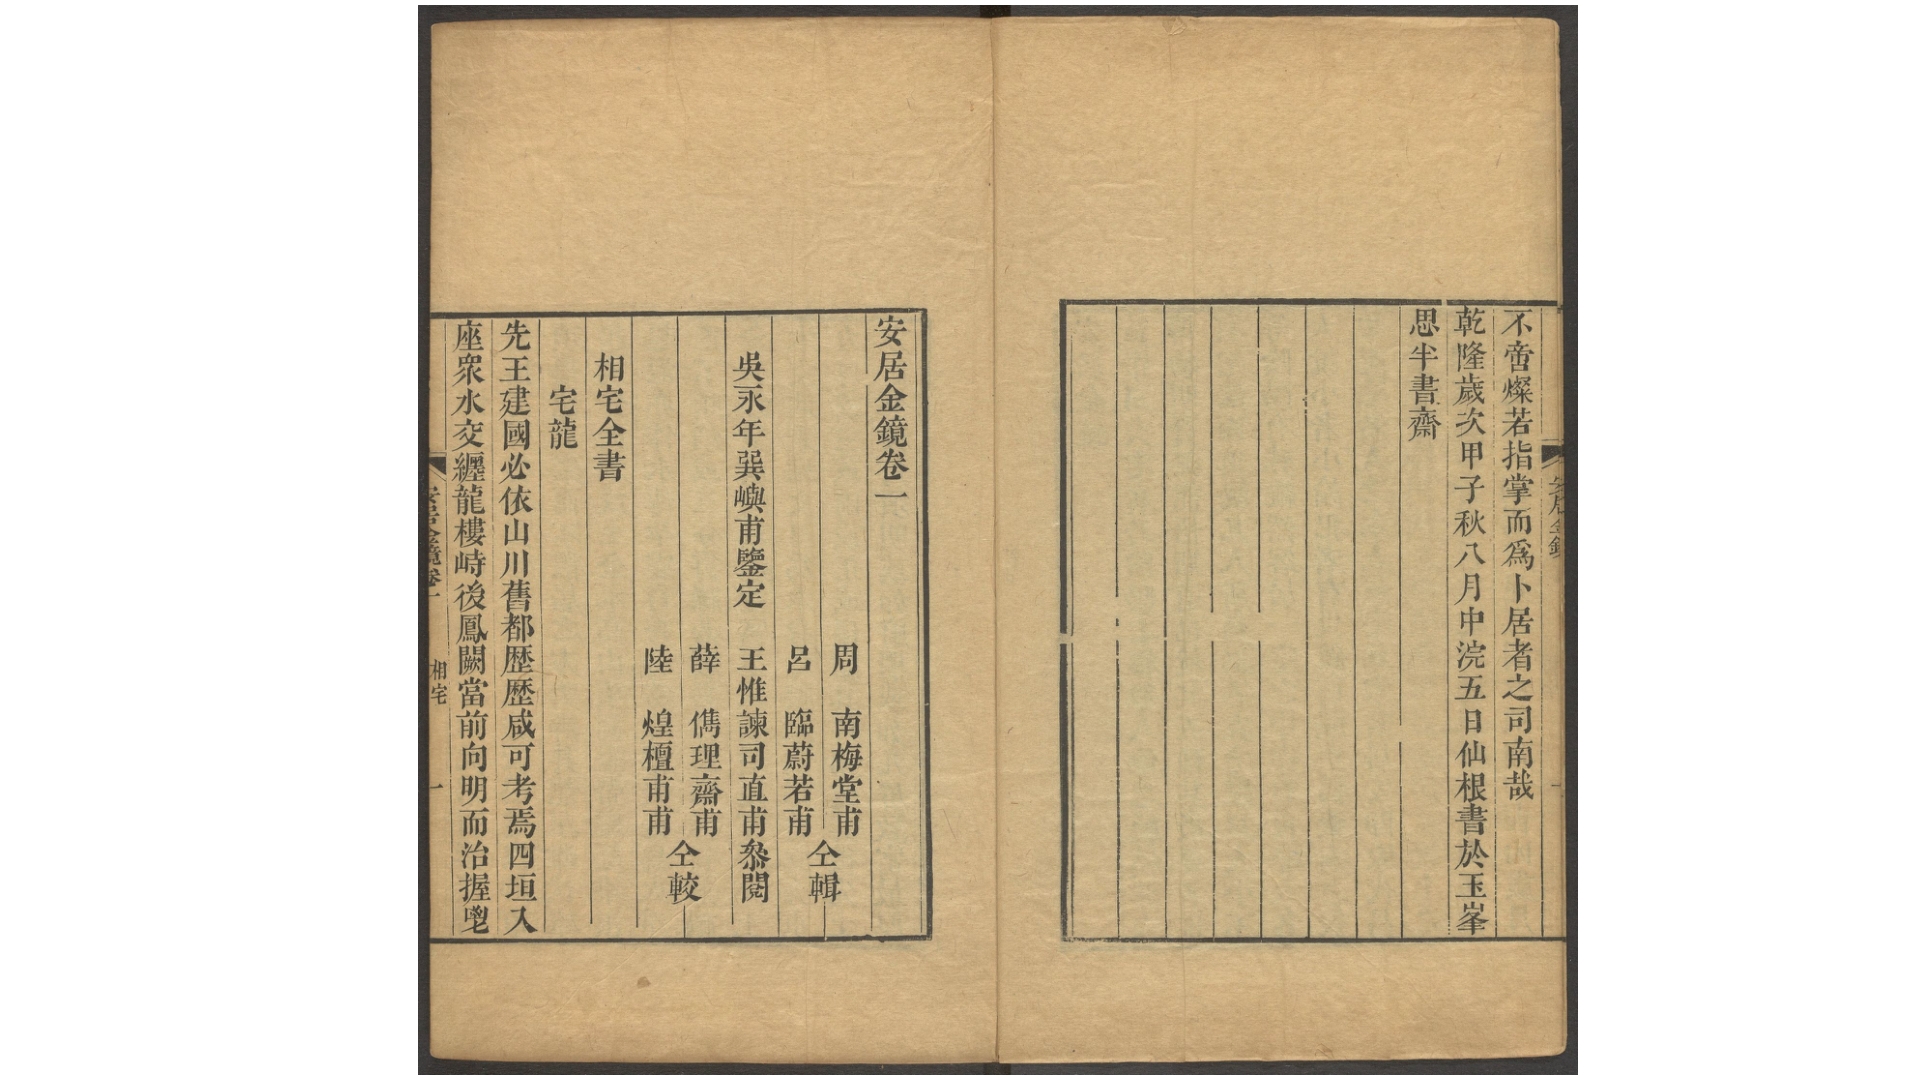 不啻燦若指掌而爲卜居者之司南哉
乾隆歲次甲子秋八月中浣五日仙根書於玉峯
思半書齋
安居金鏡卷一
周　南梅堂甫
仝輯
呂　臨蔚若甫
吳永年巽嶼甫鑒定　王惟諫司直甫叅閱
薛　儁理齋甫
仝較
陸　煌檀甫甫
相宅全書
宅龍
先王建國必依山川舊都歴歴咸可考焉四垣入
座衆水交纒龍樓峙後鳳闕當前向明而治握
安居金鏡卷一　相宅　一